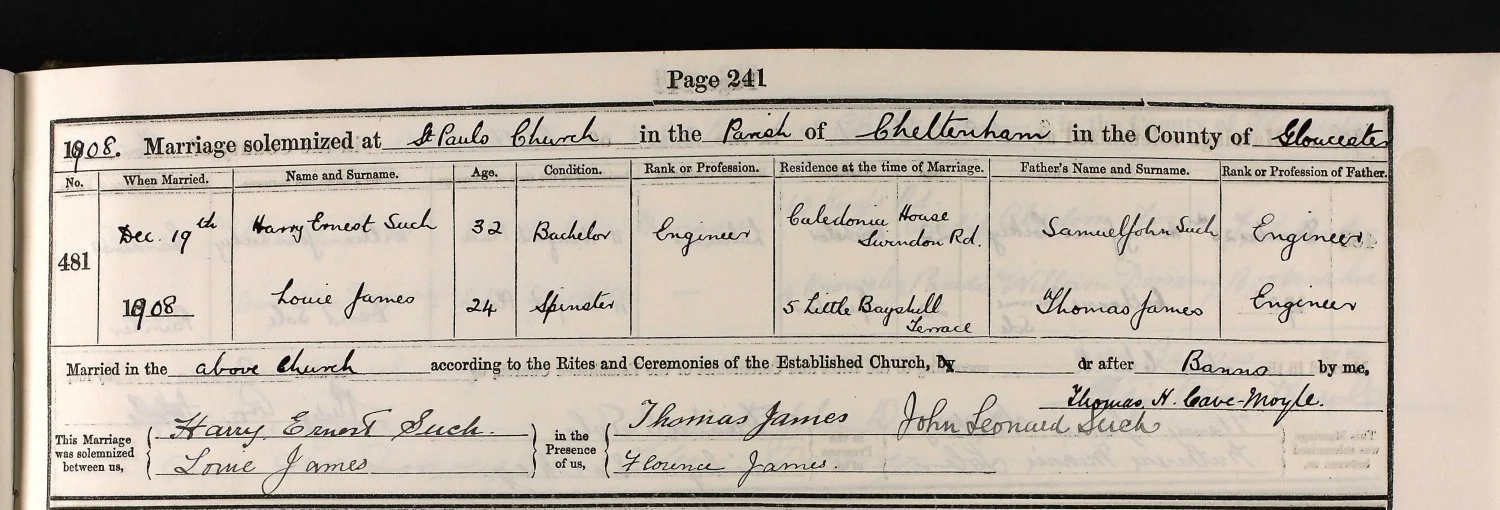 Page 241
1908. Marriage solemnized at St Pauls Church in the Parish of Cheltenham in the County of Gloucester
No. When Married. Name and Surname. Age. Condition. Rank or Profession. Residence at the time of Marriage. Father's Name and Surname. Rank or Profession of Father.
481
Dec. 19th Harry Ernest Such 32 Bachelor Engineer Caledonia House
Swindon Rd. Samuel John Such Engineer
1908 Louie James 24 Spinster 5 Little Bayshill
Terrace Thomas James Engineer
Married in the above Church according to the Rites and Ceremonies of the Established Church, by or after Banns by me,
Thomas H. Cave-Moyle.
This Marriage
was solemnized
between us,
Harry Ernest Such.
Louie James
in the
Presence
of us,
Thomas James John Leonard Such
Florence James.